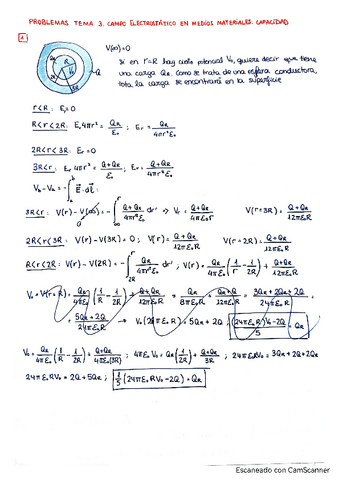 PROBLEMAS TEMA 3. CAMPO ELECTROSTÁTICO EN MEDIOS MATERIALES. CAPACIDAD
1
V(∞)=0
Si en r=R hay cierto potencial V₀, quiere decir que tiene
una carga Qʀ. Como se trata de una esfera conductora,
toda la carga se encontrará en la superficie
r<R: Eᵣ=0
R<r<2R: Eᵣ 4πr² = Qʀ/ε₀ ; Eᵣ = Qʀ/4πr²ε₀
2R<r<3R: Eᵣ=0
3R<r: Eᵣ 4πr² = (Q+Qʀ)/ε₀ ; Eᵣ = (Q+Qʀ)/4πr²ε₀
3R<r: V(r) - V(∞) = -∫ (Q+Qʀ)/4πr²ε₀ dr' → Vᵣ = (Q+Qʀ)/4πε₀r V(r=3R) = (Q+Qʀ)/12πε₀R
2R<r<3R: V(r) - V(3R) = 0 ; V(r) = (Q+Qʀ)/12πε₀R V(r=2R) = (Q+Qʀ)/12πε₀R
R<r<2R: V(r) - V(2R) = -∫ Qʀ/4πr²ε₀ dr' ; V(r) = Qʀ/4πε₀ (1/r - 1/2R) + (Q+Qʀ)/12πε₀R
V₀ = V(r=R) = Qʀ/4πε₀ (1/R - 1/2R) + (Q+Qʀ)/12πε₀R = Qʀ/8πε₀R + (Q+Qʀ)/12πε₀R = (3Qʀ+2Qʀ+2Q)/24πε₀R
= (5Qʀ+2Q)/24πε₀R → V₀ (24πε₀R) = 5Qʀ+2Q ; ((24πε₀R)V₀-2Q)/5 = Qʀ
V₀ = Qʀ/4πε₀ (1/R - 1/2R) + (Q+Qʀ)/4πε₀(3R) ; 4πε₀V₀ = Qʀ (1/2R) + (Q+Qʀ)/3R ; 24πε₀RV₀ = 3Qʀ+2Q+2Qʀ
24πε₀RV₀ = 2Q+5Qʀ ; 1/5 (24πε₀RV₀ - 2Q) = Qʀ
Escaneado con CamScanner